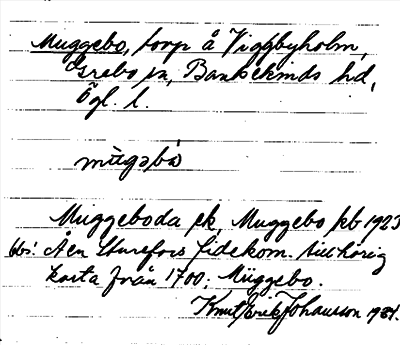 Muggebo, torp å Viggbyholm,
Grebo sn, Bankekinds hd,
Ögl. l.
mùgəbó
Muggeboda ek, Muggebo kb 1923
Obs! Å en Sturefors fidekom. tillhörig
karta från 1700: Müggebo.
Knut Erik Johansson 1931.